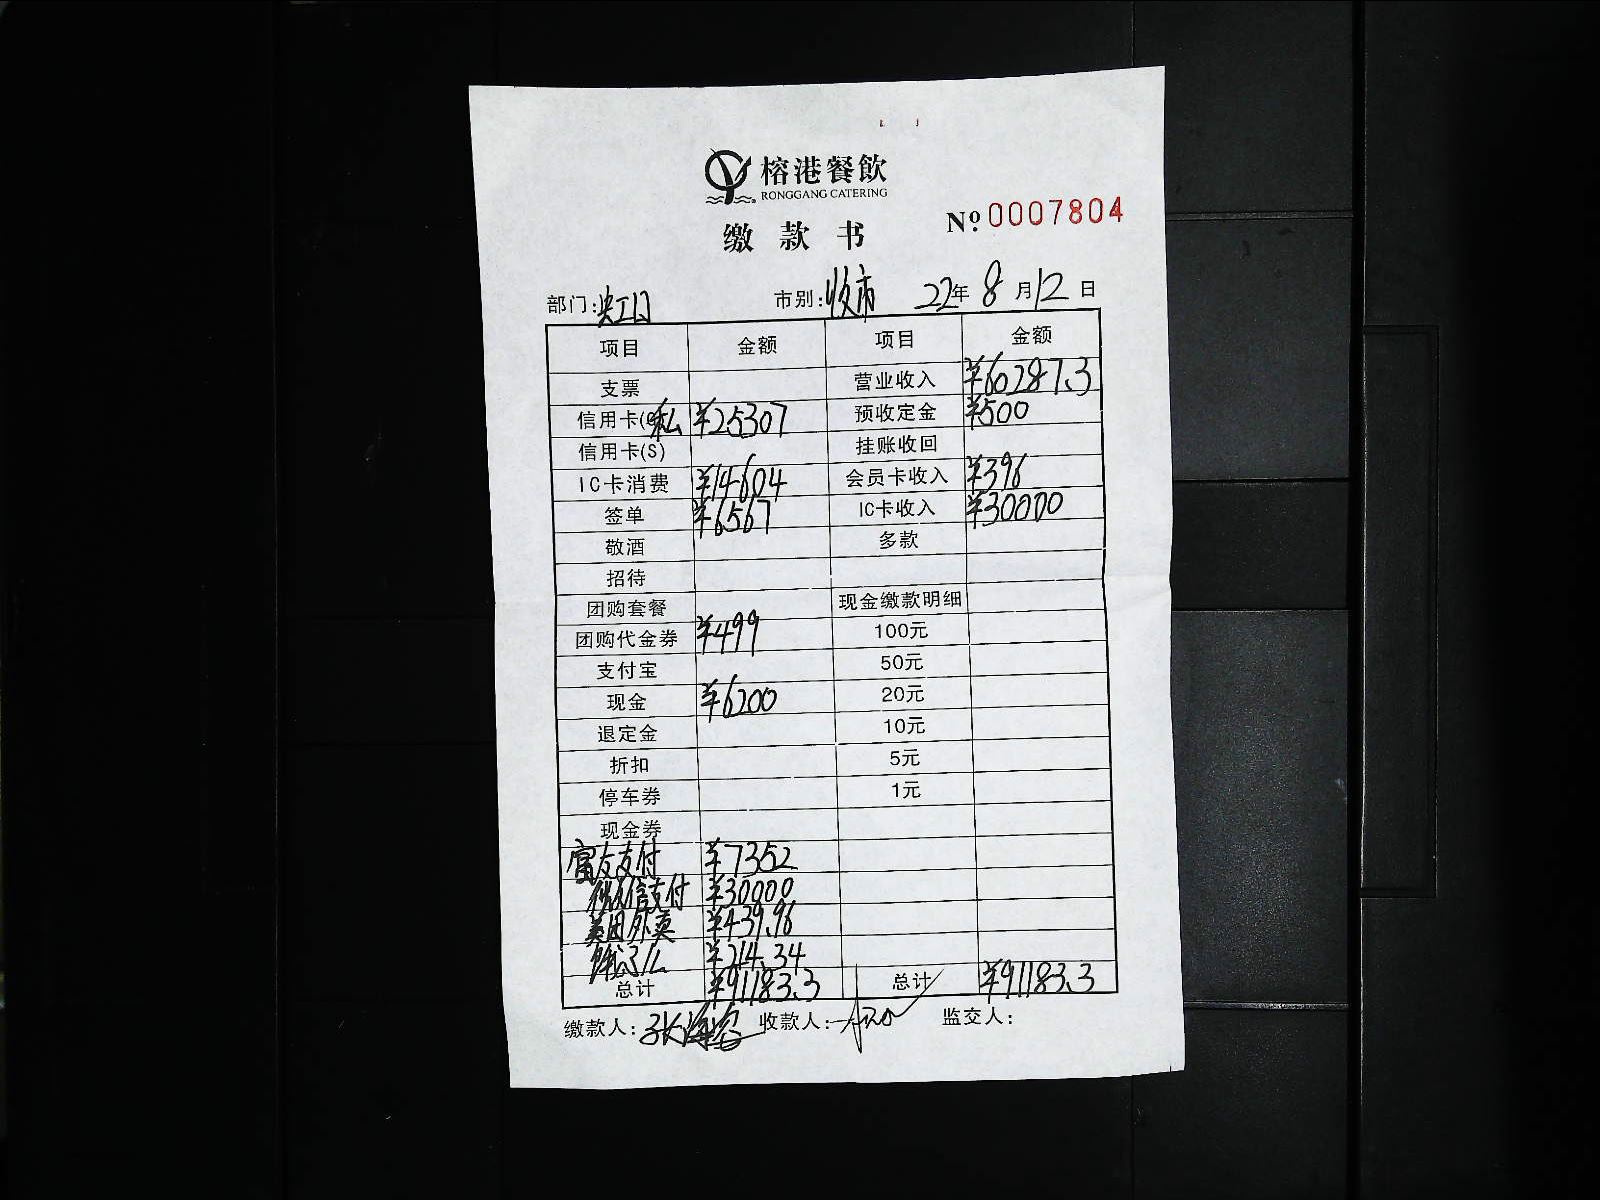 榕港餐飲
RONGGANG CATERING
缴款书
Nº:0007804
部门: 市别:收市 22年8月12日
项目 金额 项目 金额
支票 营业收入 ¥60287.3
信用卡( 私 ¥25307 预收定金 ¥500
信用卡(S) 挂账收回
IC卡消费 ¥14604 会员卡收入 ¥396
签单 ¥6567 IC卡收入 ¥30000
敬酒 多款
招待
团购套餐 现金缴款明细
团购代金券 ¥499 100元
支付宝 50元
现金 ¥6200 20元
退定金 10元
折扣 5元
停车券 1元
现金券
富友支付 ¥7352
微信支付 ¥30000
美团外卖 ¥439.96
饿了么 ¥214.34
总计 ¥91183.3 总计 ¥91183.3
缴款人: 收款人: 监交人: